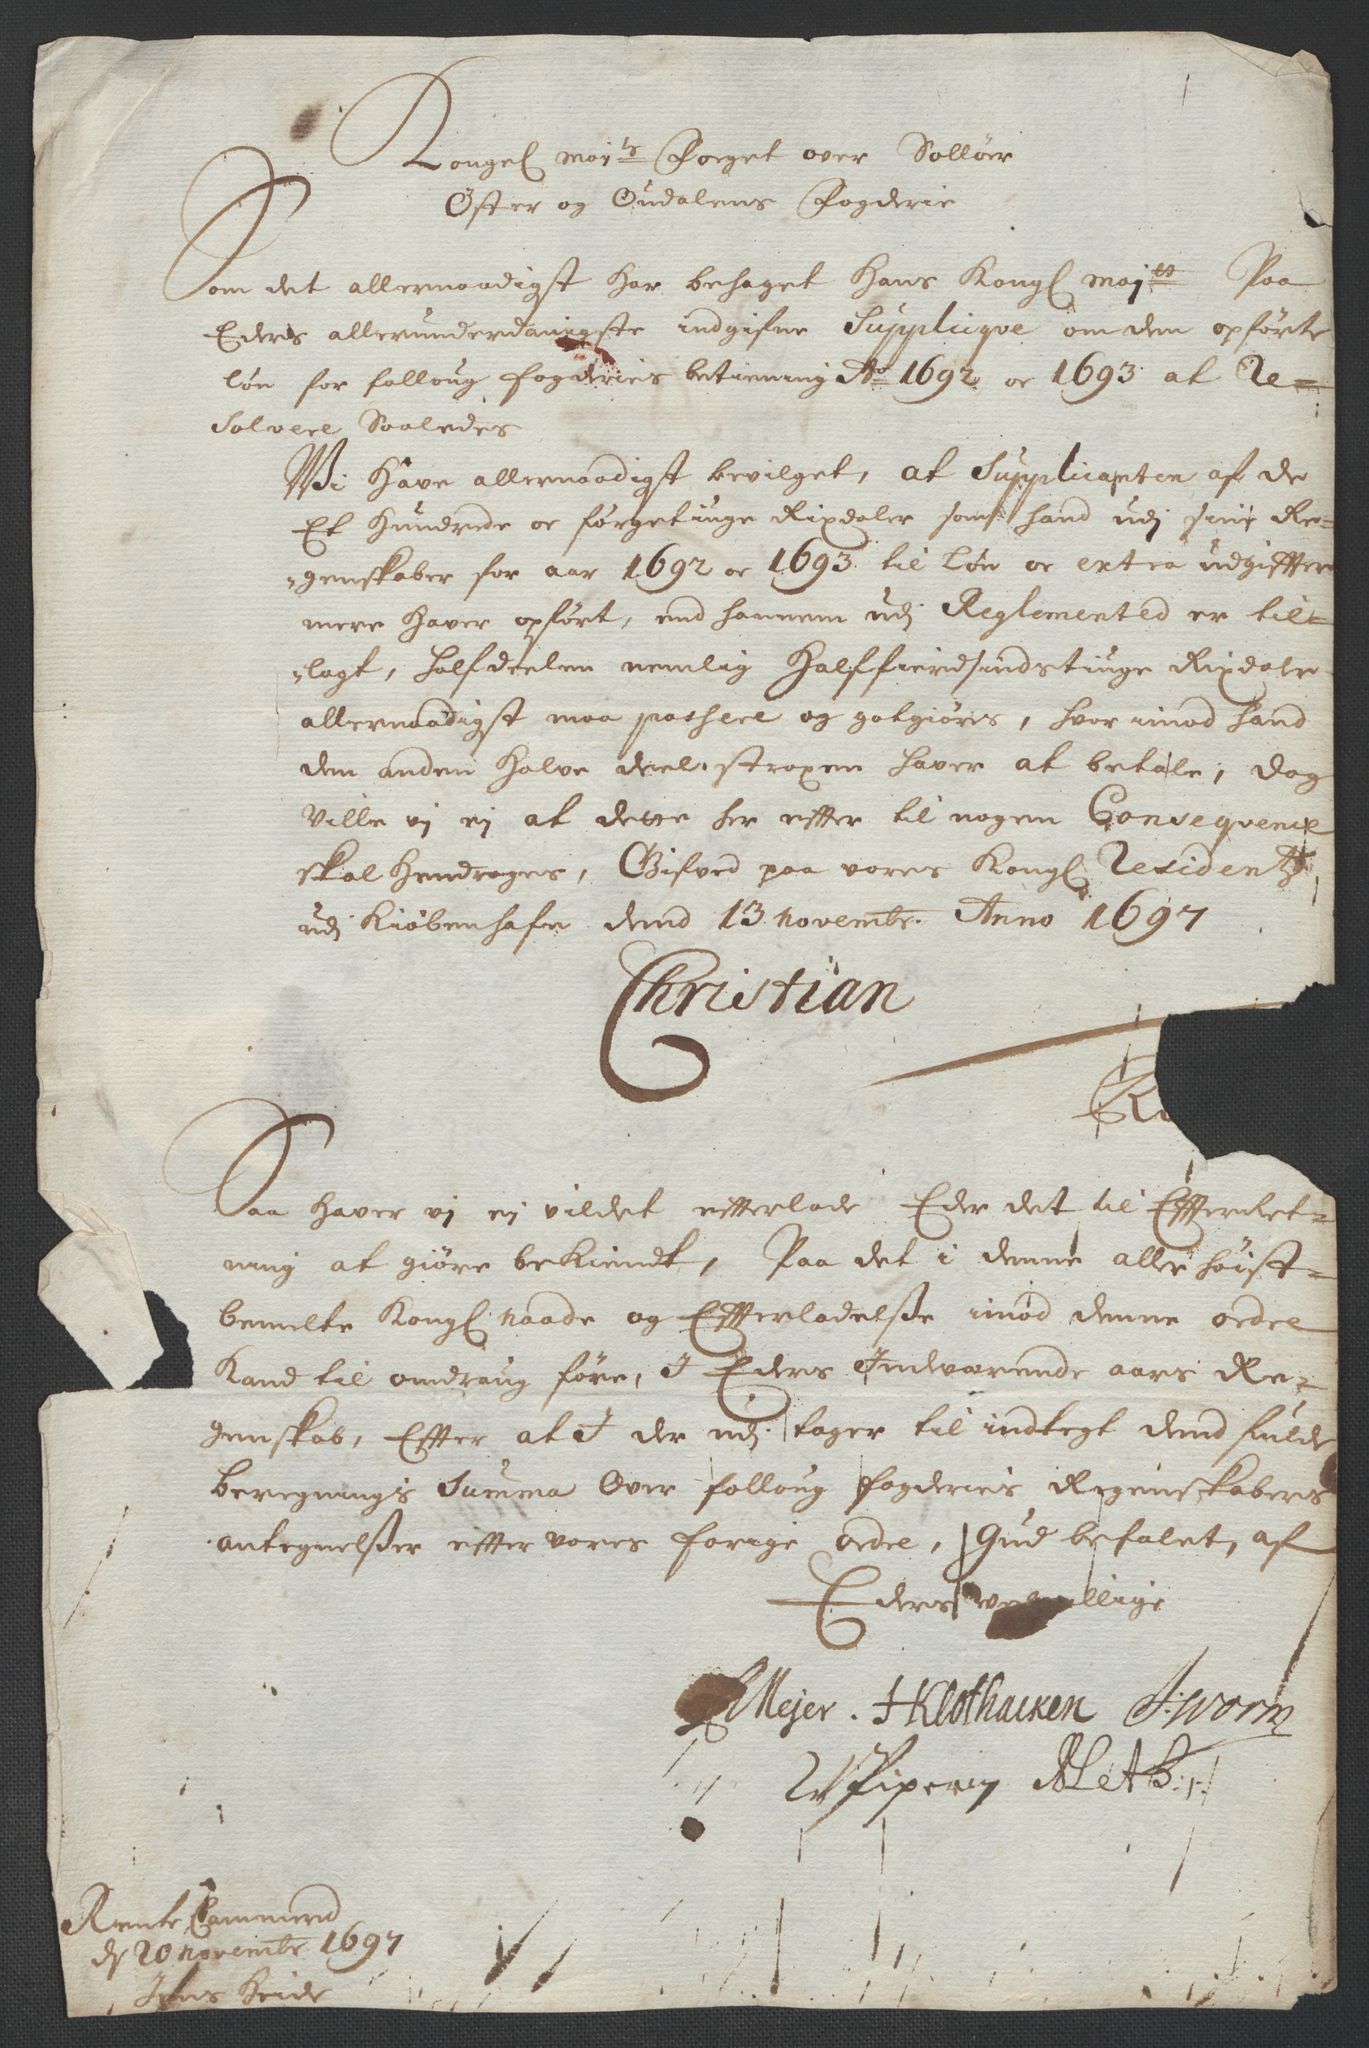 Kongel May:ts Foeget over Solløer
Øster og Oudalens Fogderie
Som det allernaadigst har behaget Hans Kongl May:tt Paa
Eders allerunderdanigste indgifne Supplicqve om dem opførte
løn for folloug fogderies betiening A:o 1692 oc 1693 at Re-
solvere Saaledes
Wi Have allernaadigst bevilget, at Supplicanten af de
Et Hundrede oc førgetiuge Rixdaler som hand udj sine Re-
genskaber for aar 1692 oc 1693 til Løn oc extra udgiffter
mere haver opført, end hannem udj Reglemented er til-
lagt, halfdeelen nemlig Halffierdsindstiuge Rixdaler
allernaadigst maa pashere og gotgiøris, hvor imod hand
den anden halve deel straxen haver at betale, dog
Ville vj ej at dette her effter til nogen Conseqvence
skal hendrages, Gifved paa vores Kongl Residentz
udj Kiøbenhafn dend 13 Novembr. Anno 1697
Christian
Saa haver vj ej vildet efterlade Eder det til Effterret-
ning at giøre bekiendt, Paa det i denne aller høist-
bemelte Kongl Naade og Effterladelsse imod denne ordre
Kand til omdraug føre, I Eders Indværende aars Re-
genskab, Effter at I der udj tager til indtegt dend fulde
beregnings Summa Over folloug fogderies Regenskabers
antegnelsser effter vores forrige ordre, Gud befalet, af
Eders velvillige
Mejer . H Klothacken J: Worm
Piper
Rente Cammered
d 20 Novembr 1697
Jens Heide